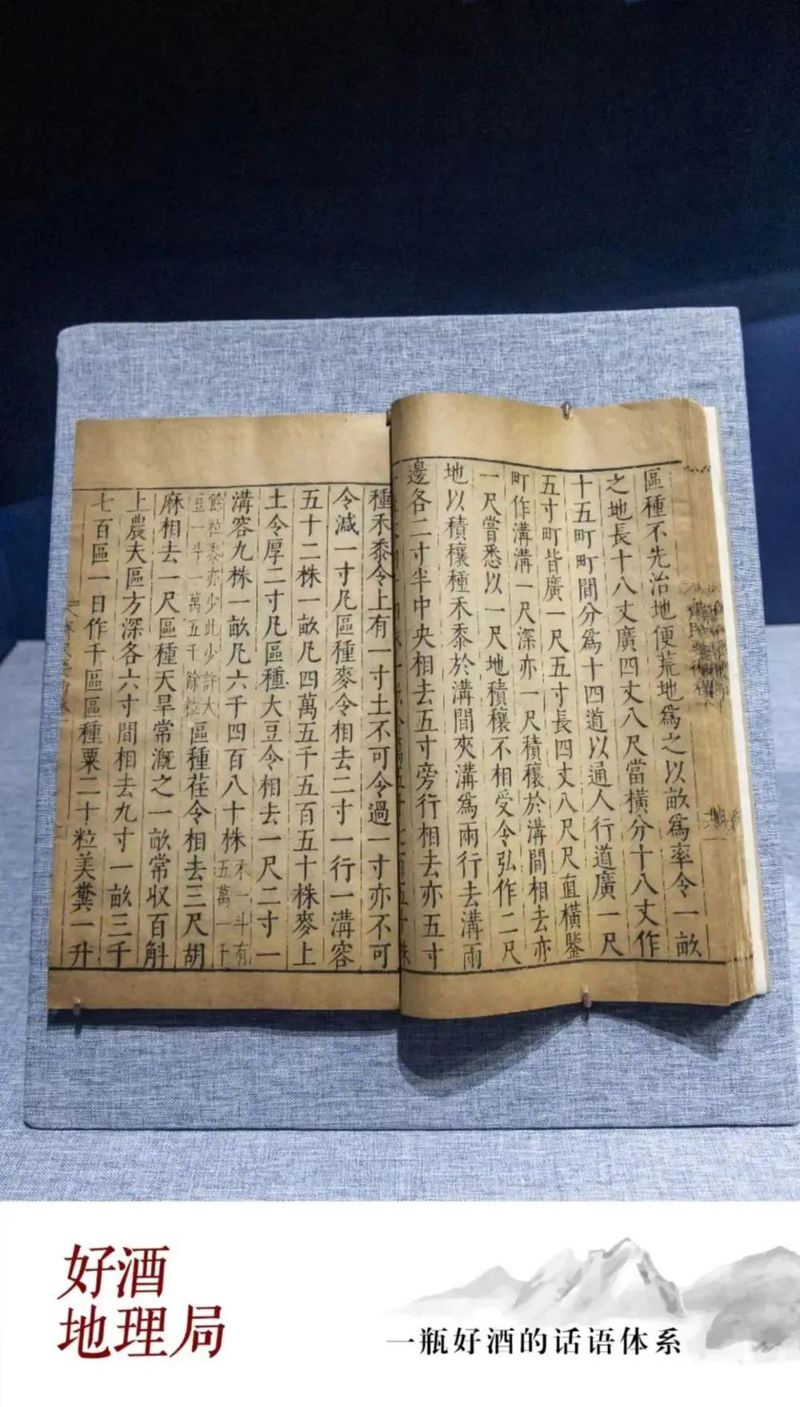 區種不先治地便荒地爲之以畝爲率令一畝
之地長十八丈廣四丈八尺當橫分十八丈作
十五町町間分爲十四道以通人行道廣一尺
五寸町皆廣一尺五寸長四丈八尺尺直橫鑒
町作溝溝一尺深亦一尺積穰於溝間相去亦
一尺嘗悉以一尺地積穰不相受令弘作二尺
地以積穰種禾黍於溝間夾溝爲兩行去溝兩
邊各二寸半中央相去五寸旁行相去亦五寸
種禾黍令上有一寸土不可令過一寸亦不可
令減一寸凡區種麥令相去二寸一行一溝容
五十二株一畝凡四萬五千五百五十株麥上
土令厚二寸凡區種大豆令相去一尺二寸一
溝容九株一畝凡六千四百八十株禾一斗有五萬一千
餘粒黍亦少此少許大豆一斗一萬五千餘粒區種荏令相去三尺胡
麻相去一尺區種天旱常漑之一畝常収百斛
上農夫區方深各六寸間相去九寸一畝三千
七百區一日作千區區種粟二十粒美糞一升
好酒
地理局
一瓶好酒的话语体系